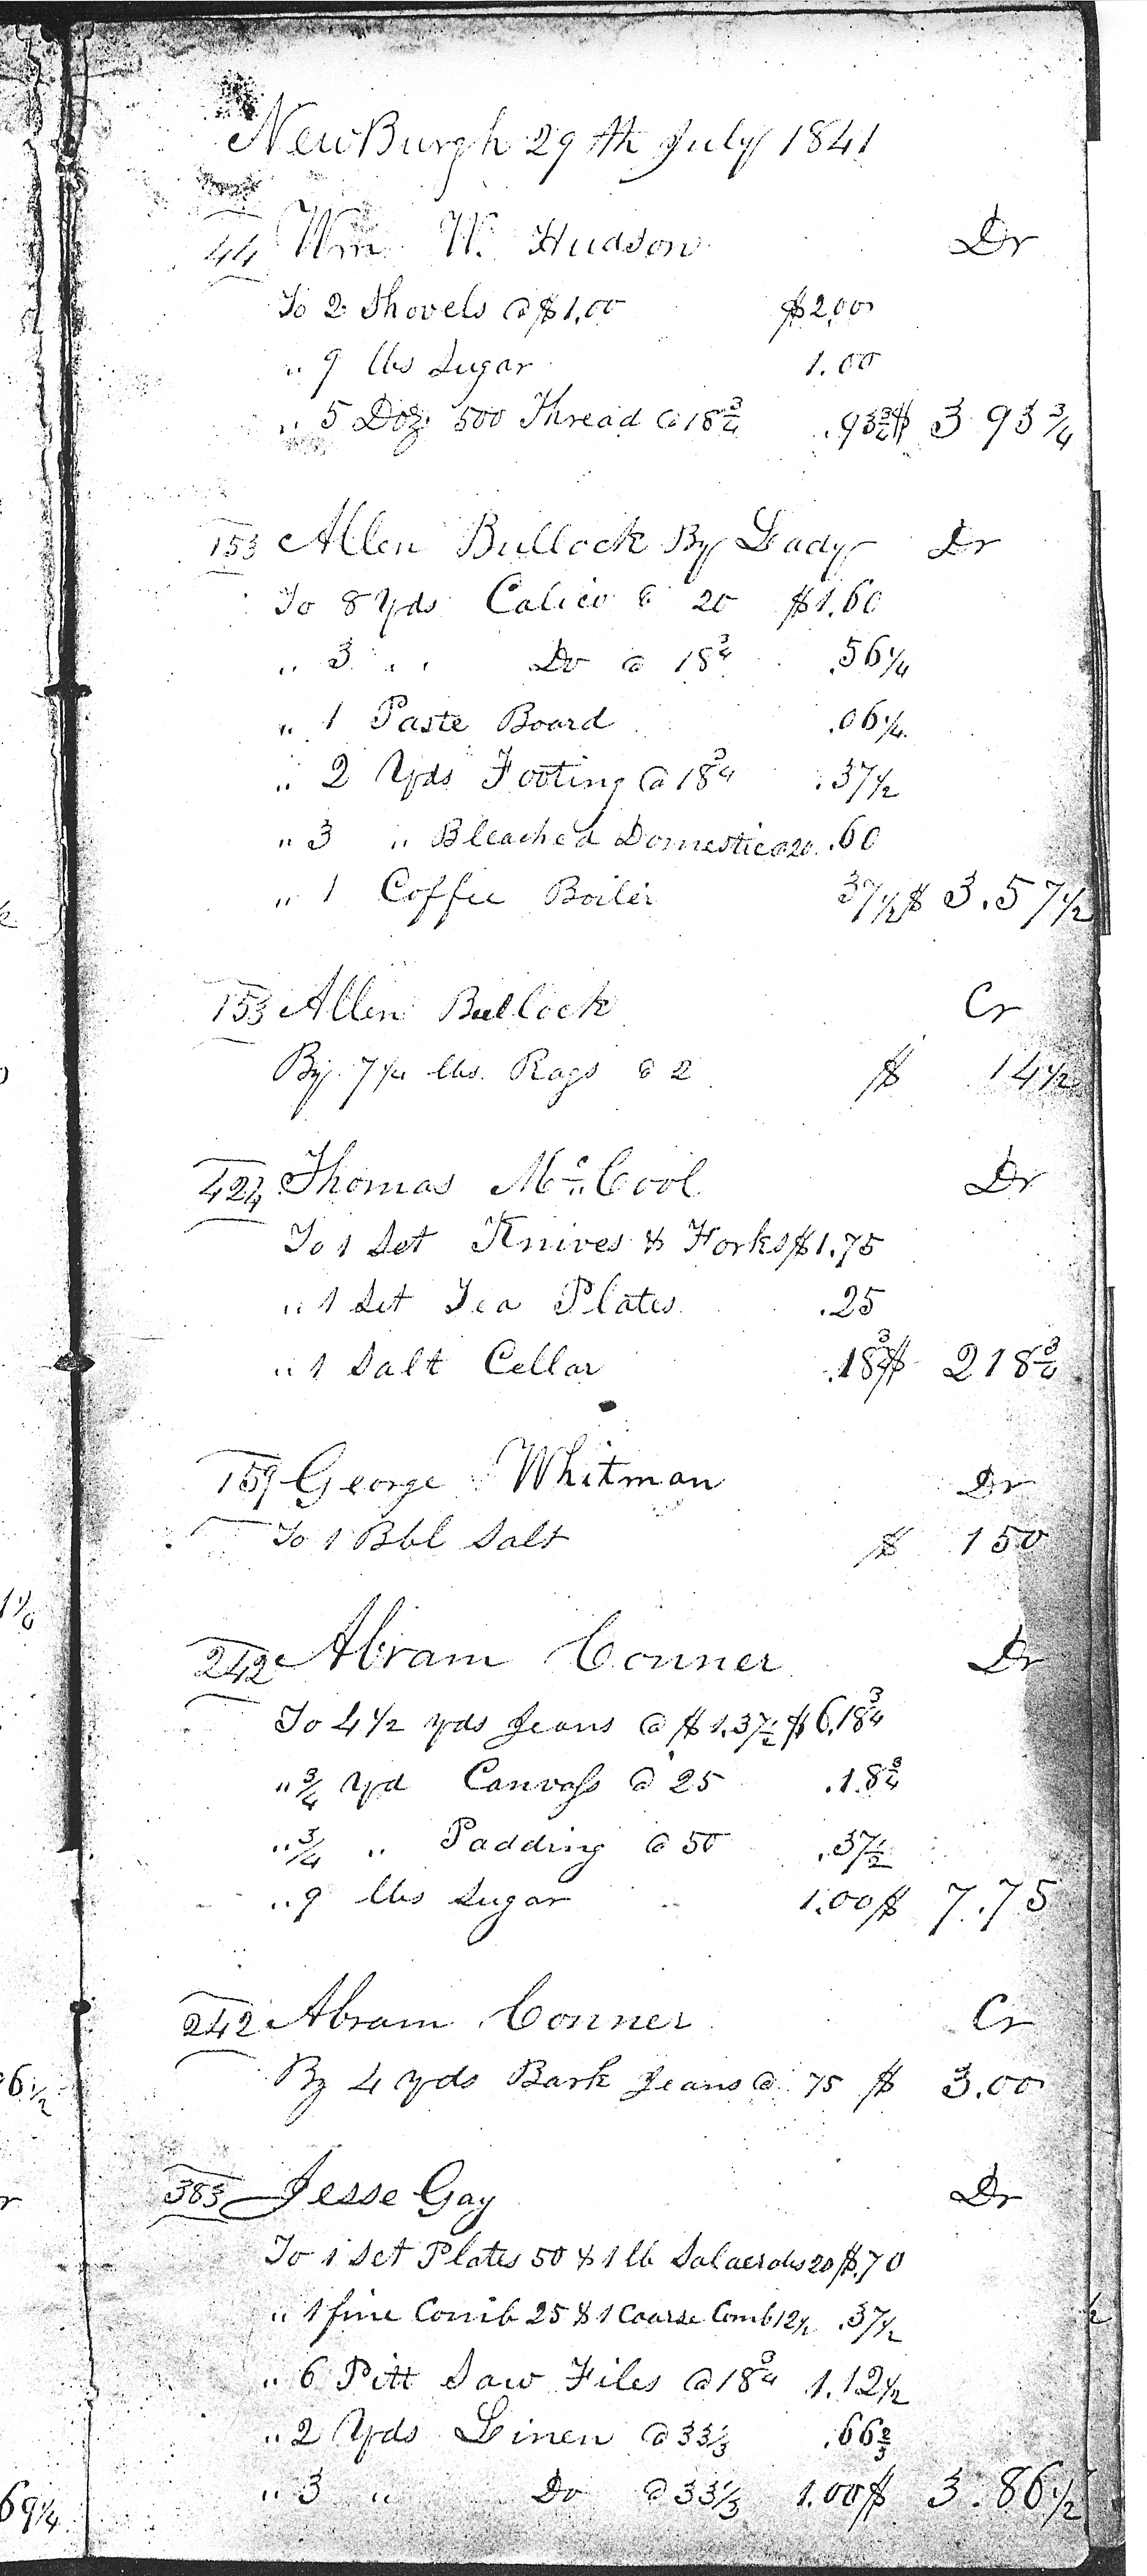 NewBurgh 29th July 1841
44 Wm W. Hudson Dr
To 2 Shovels @ $1.00 $2.00
" 9 lbs Sugar 1.00
" 5 Doz 500 Thread @ 18 3/4 .93 3/4 $ 3 93 3/4
153 Allen Bullock By Lady Dr
To 8 Yds Calico @ 20 $1.60
" 3 " Do @ 18 3/4 .56 1/4
" 1 Paste Board .06 1/4
" 2 Yds Footing @ 18 3/4 .37 1/2
" 3 " Bleached Domestic @ 20 .60
" 1 Coffee Boiler 37 1/2 $ 3.57 1/2
153 Allen Bullock Cr
By 7 1/4 lbs. Rags @ 2 $ 14 1/2
424 Thomas McCool Dr
To 1 Set Knives & Forks $1.75
" 1 Set Tea Plates .25
" 1 Salt Cellar .18 3/4 $ 2 18 3/4
159 George Whitman Dr
To 1 Bbl Salt $ 1 50
242 Abram Conner Dr
To 4 1/2 yds Jeans @ $1.37 1/2 $6.18 3/4
" 3/4 Yd Canvass @ 25 .18 3/4
" 3/4 " Padding @ 50 .37 1/2
" 9 lbs Sugar 1.00 $ 7.75
242 Abram Conner Cr
By 4 yds Bark Jeans @ 75 $ 3.00
383 Jesse Gay Dr
To 1 Set Plates 50 & 1 lb Salaeratus 20 $.70
" 1 fine Comb 25 & 1 Coarse Comb 12 1/2 .37 1/2
" 6 Pitt Saw Files @ 18 3/4 1.12 1/2
" 2 Yds Linen @ 33 1/3 .66 2/3
" 3 " Do @ 33 1/3 1.00 $ 3.86 1/2